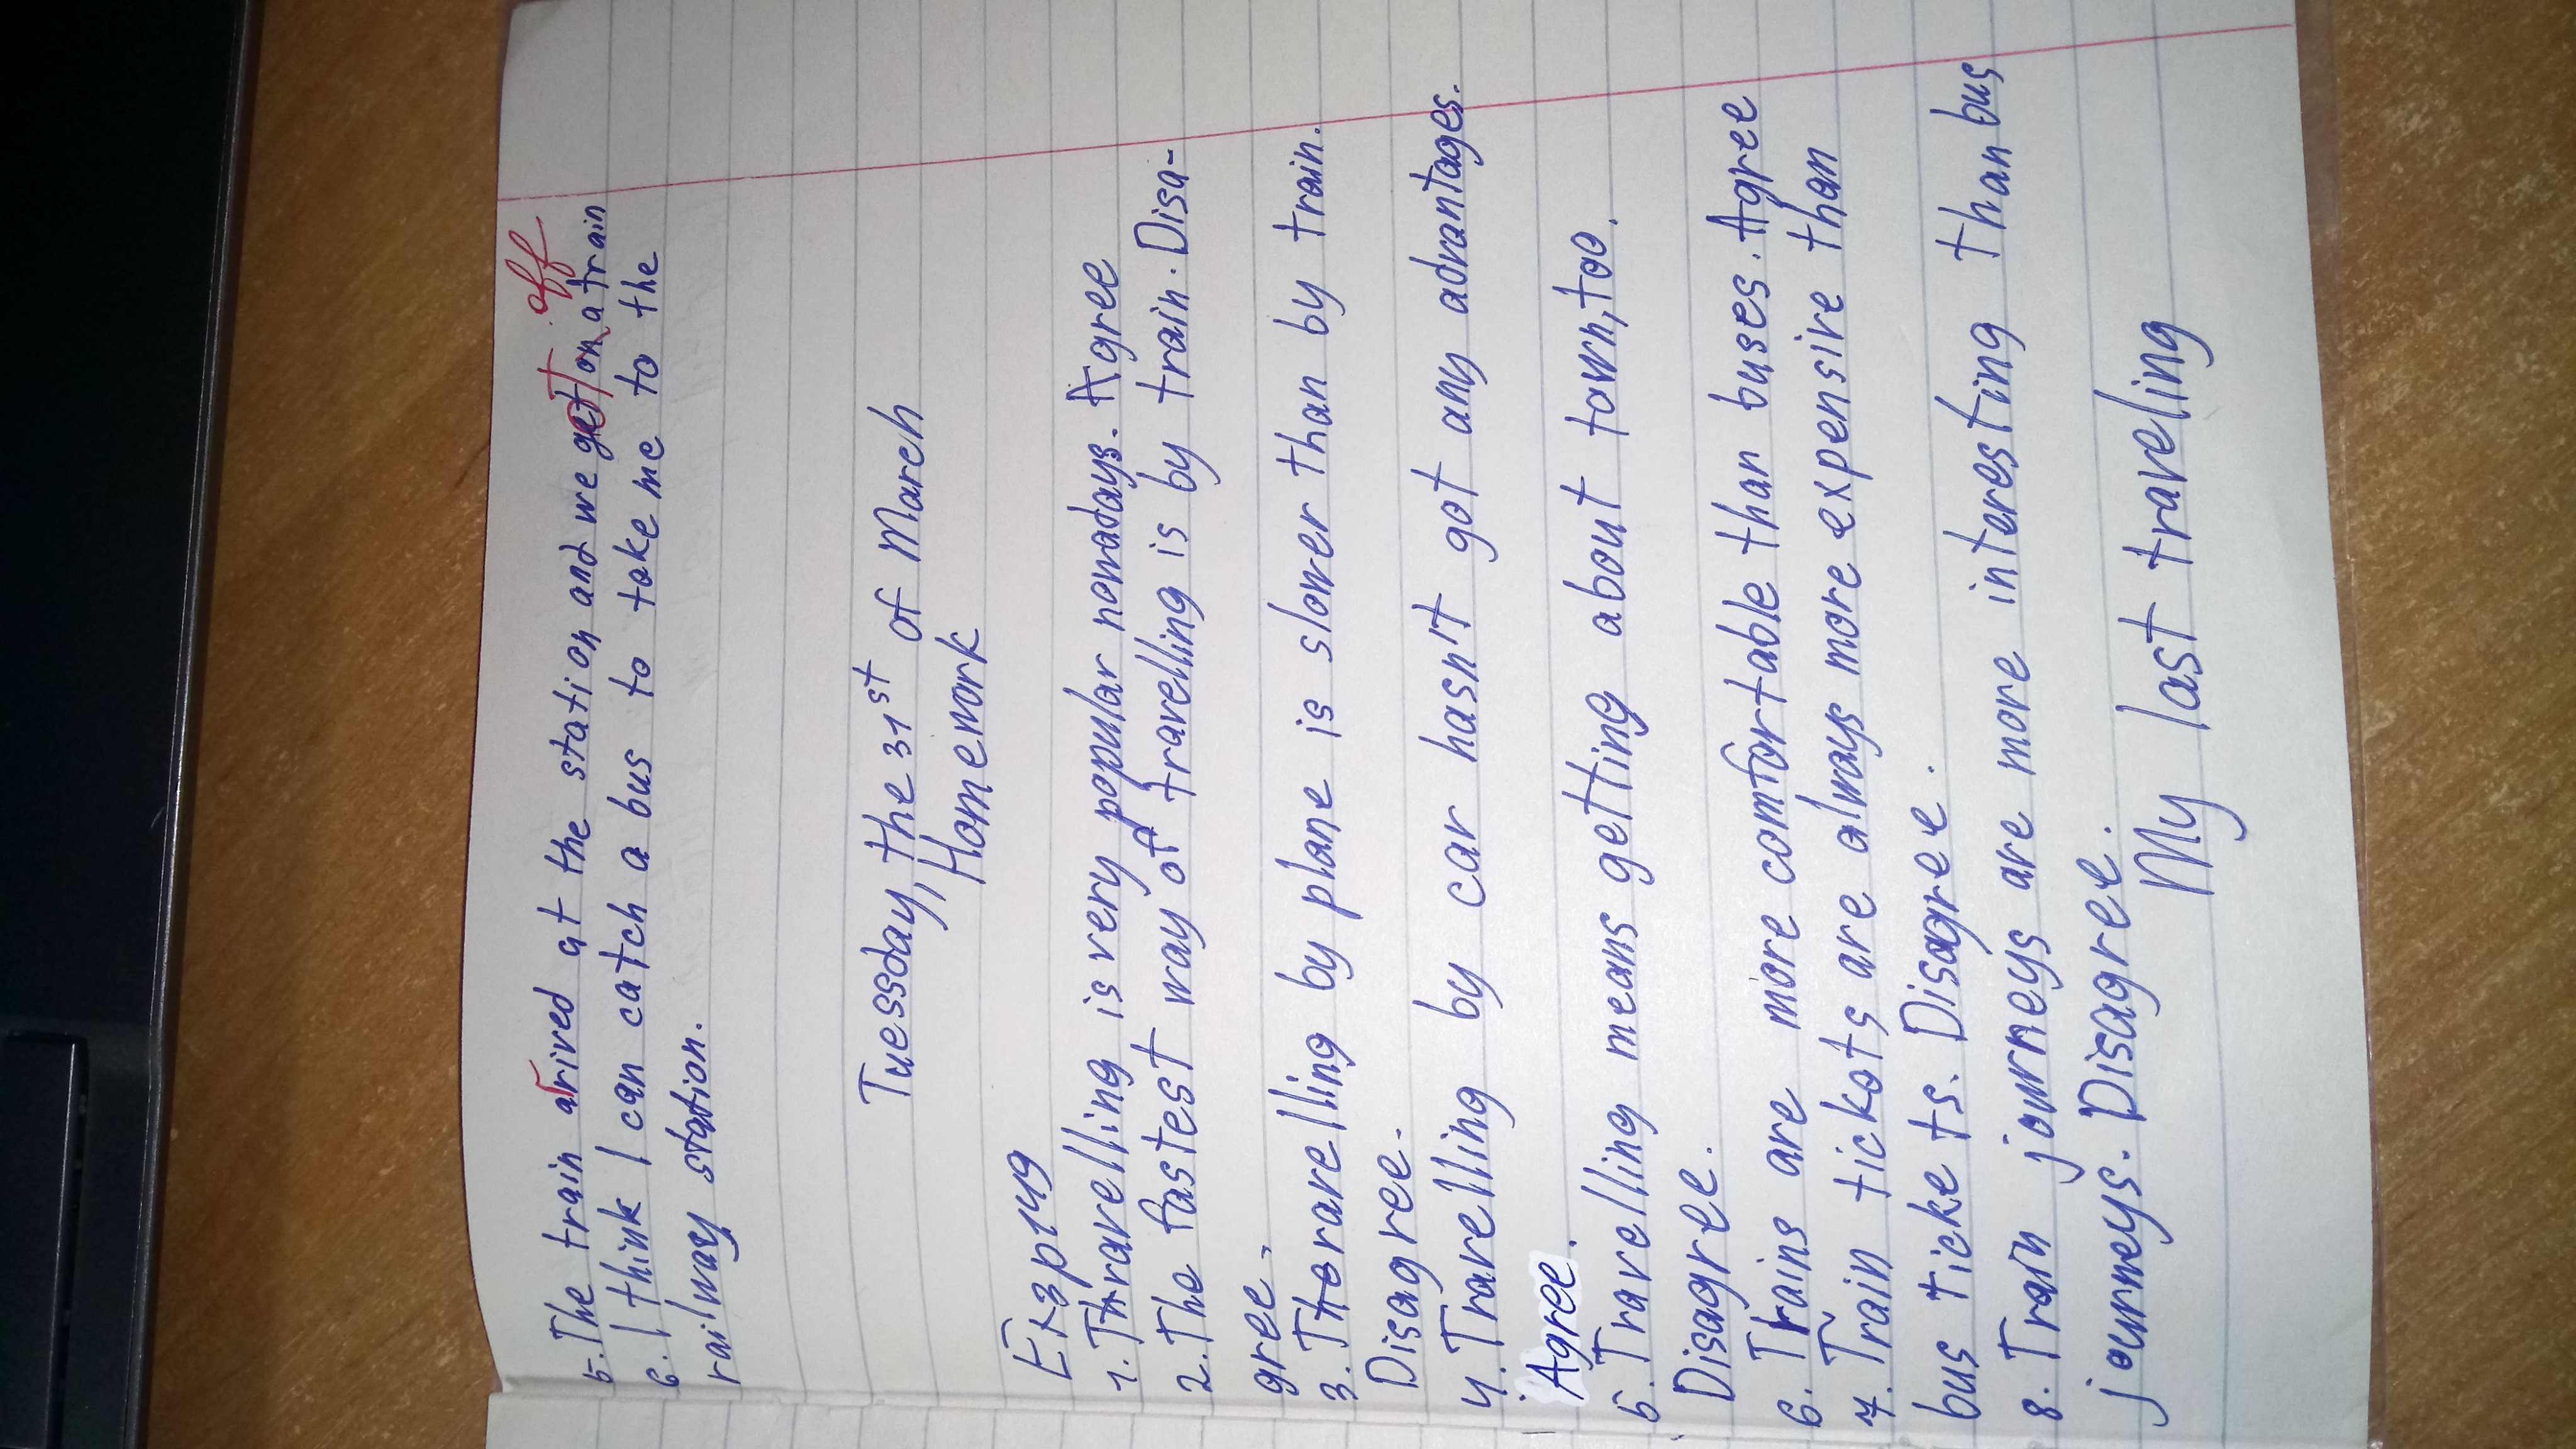 off
5. The train arived at the station and we get on a train
6. I think I can catch a bus to take me to the
railway station.
Tuessday, the 31st of March
Homework
Ex3p149
1. Thravelling is very popular nowadays. Agree
2. The fastest way of travelling is by train. Disa-
gree.
3. Theravelling by plane is slower than by train.
Disagree.
4. Travelling by car hasn't got any advantages.
Agree.
5. Travelling means getting about town, too.
Disagree.
6. Trains are more comfortable than buses. Agree
7. Train tickots are always more expensive than
bus tickets. Disagree.
8. Train journeys are more interesting than bus
journeys. Disagree.
My last traveling